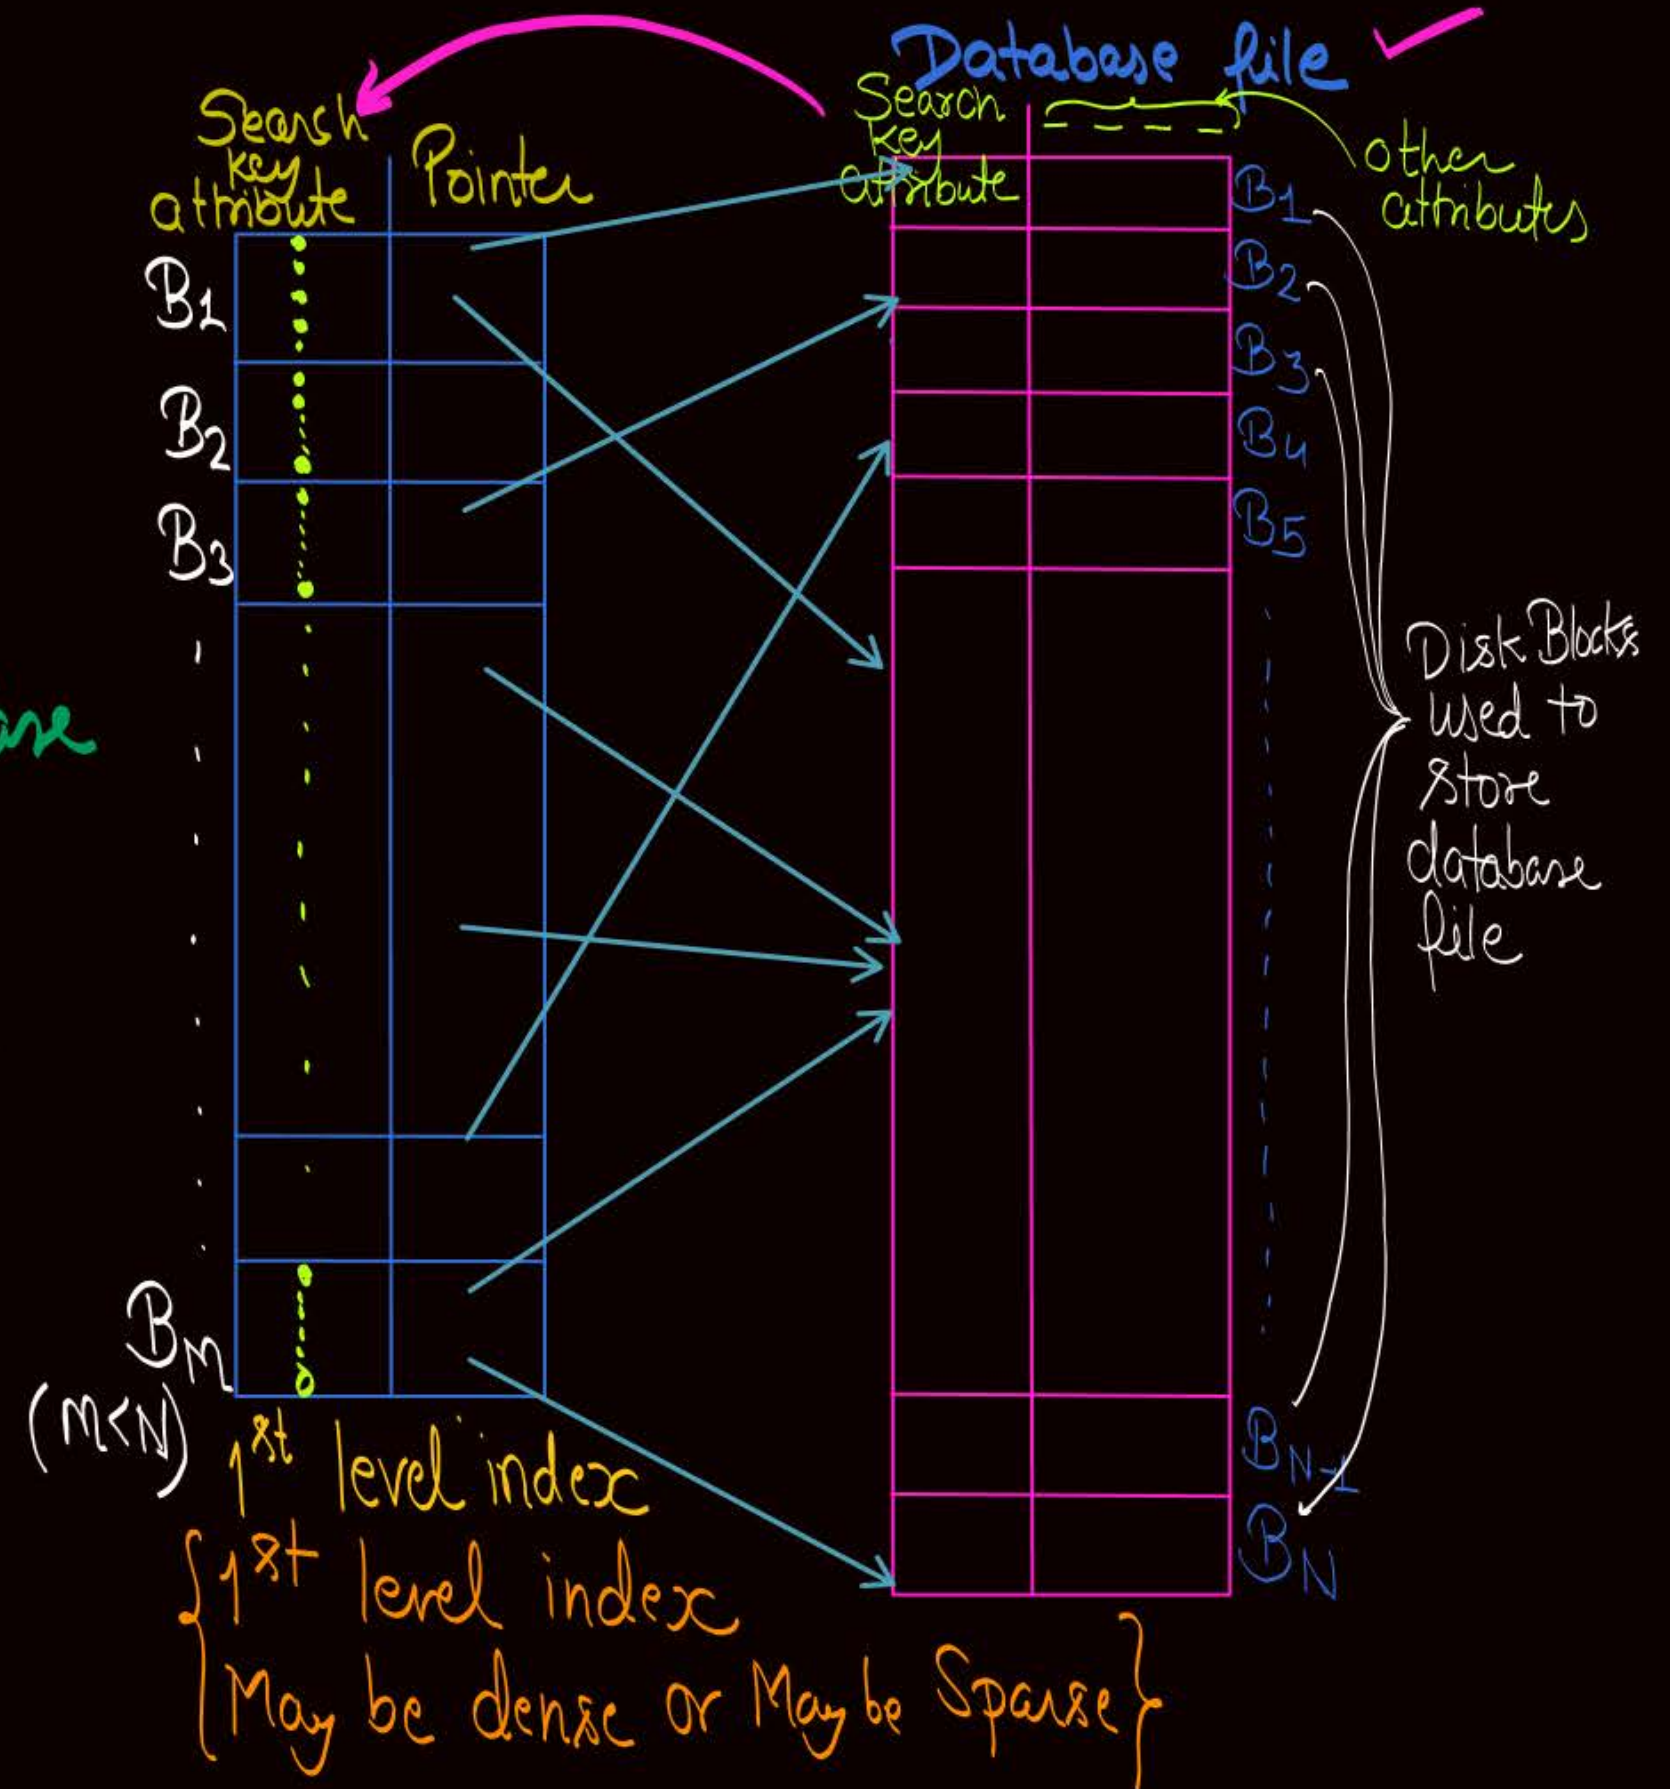 Database file
Search
key
attribute
Pointer
Search
key
attribute
other
attributes
B1
B2
B3
BM
(M<N)
B1
B2
B3
B4
B5
BN-1
BN
Disk Blocks
used to
store
database
file
1st level index
{1st level index
May be dense or May be Sparse}